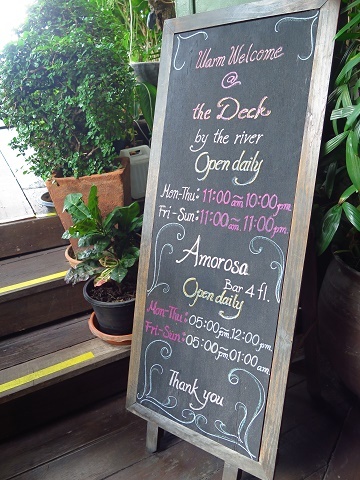 Warm Welcome
@
the Deck
by the river
Open daily
Mon-Thu: 11:00am~10:00pm
Fri-Sun: 11:00am~11:00pm
Amorosa
Bar 4 fl.
Open daily
Mon-Thu: 05:00pm~12:00pm
Fri-Sun: 05:00pm~01:00am
Thank you